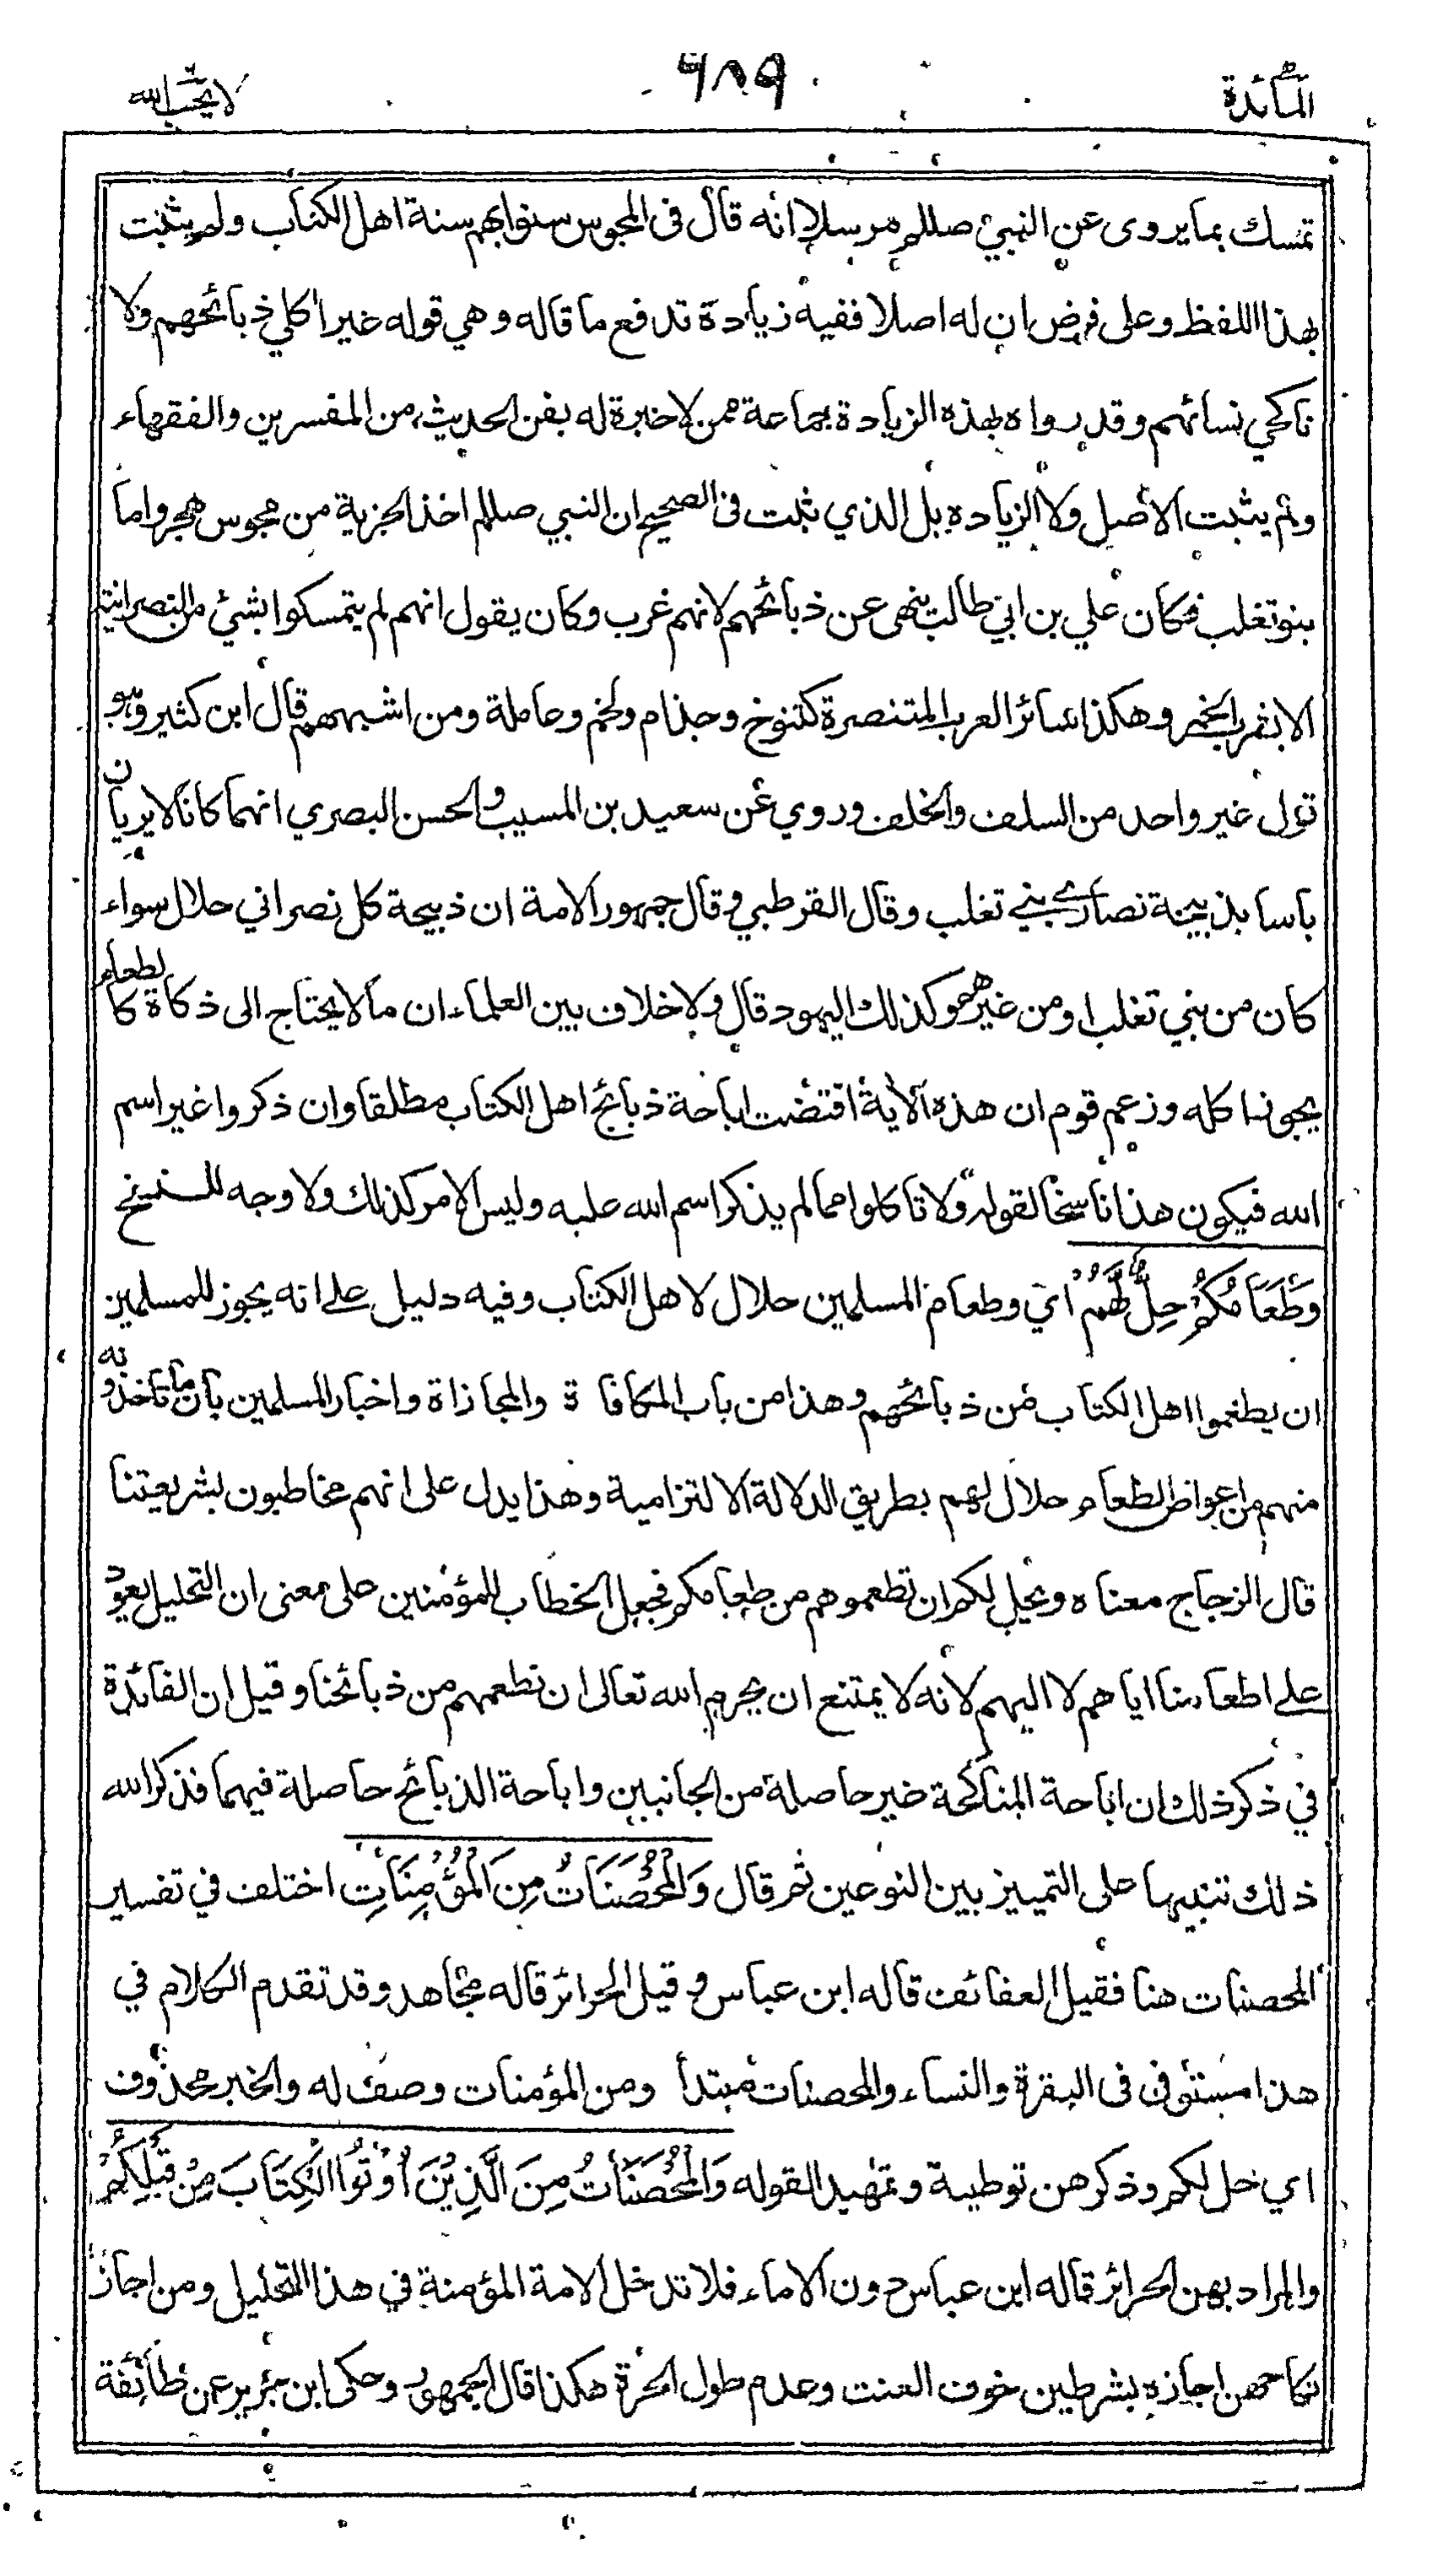 المائدة
٦٨٩
لا يحب الله
تمسك بما يروى عن النبي صللم مرسلا انه قال فى المجوس سنوا بهم سنة اهل الكتاب ولم يثبت
بهذا اللفظ وعلى فرض ان له اصلا ففيه زيادة تدفع ما قاله وهي قوله غير اكلي ذبائحهم ولا
ناكحي نسائهم وقد رواه بهذه الزيادة جماعة ممن لا خبرة له بفن الحديث من المفسرين والفقهاء
ولم يثبت الاصل ولا الزيادة بل الذي ثبت فى الصحيح ان النبي صللم اخذ الجزية من مجوس هجر واما
بنو تغلب فكان علي بن ابي طالب ينهى عن ذبائحهم لانهم عرب وكان يقول انهم لم يتمسكوا بشئ من النصرانية
الا بشرب الخمر وهكذا سائر العرب المتنصرة كتنوخ وجذام ولخم وعاملة ومن اشبههم قال ابن كثير وهو
قول غير واحد من السلف والخلف وروي عن سعيد بن المسيب والحسن البصري انهما كانا لا يريان
باسا بذبيحة نصارى بني تغلب وقال القرطبي وقال جمهور الامة ان ذبيحة كل نصراني حلال سواء
كان من بني تغلب او من غيرهم وكذلك اليهود قال ولا خلاف بين العلماء ان ما لا يحتاج الى ذكاة كالطعام
يجوز اكله وزعم قوم ان هذه الآية اقتضت اباحة ذبائح اهل الكتاب مطلقا وان ذكروا غير اسم
الله فيكون هذا ناسخا لقوله ولا تاكلوا مما لم يذكر اسم الله عليه وليس الامر كذلك ولا وجه للنسخ
وَطَعَامُكُمْ حِلٌّ لَّهُمْ اي وطعام المسلمين حلال لاهل الكتاب وفيه دليل على انه يجوز للمسلمين
ان يطعموا اهل الكتاب من ذبائحهم وهذا من باب المكافاة والمجازاة واخبار المسلمين بان ما تاخذونه
منهم من اعواض الطعام حلال لهم بطريق الدلالة الالتزامية وهذا يدل على انهم مخاطبون بشريعتنا
قال الزجاج معناه ويحل لكم ان تطعموهم من طعامكم فجعل الخطاب للمؤمنين على معنى ان التحليل يعود
على اطعامنا اياهم لا اليهم لانه لا يمتنع ان يحرم الله تعالى ان نطعمهم من ذبائحنا وقيل ان الفائدة
في ذكر ذلك ان اباحة المناكحة غير حاصلة من الجانبين واباحة الذبائح حاصلة فيهما فذكر الله
ذلك تنبيها على التمييز بين النوعين ثم قال وَالْمُحْصَنَاتُ مِنَ الْمُؤْمِنَاتِ اختلف في تفسير
المحصنات هنا فقيل العفائف قاله ابن عباس وقيل الحرائر قاله مجاهد وقد تقدم الكلام في
هذا مستوفى فى البقرة والنساء والمحصنات مبتدأ ومن المؤمنات وصف له والخبر محذوف
اي حل لكم وذكرهن توطية وتمهيد القوله وَالْمُحْصَنَاتُ مِنَ الَّذِيْنَ اُوْتُوا الْكِتَابَ مِنْ قَبْلِكُمْ
والمراد بهن الحرائر قاله ابن عباس دون الاماء فلا تدخل الامة المؤمنة في هذا التحليل ومن اجاز
نكاحهن اجازه بشرطين خوف العنت وعدم طول الحرة هكذا قال الجمهور وحكى ابن جرير عن طائفة